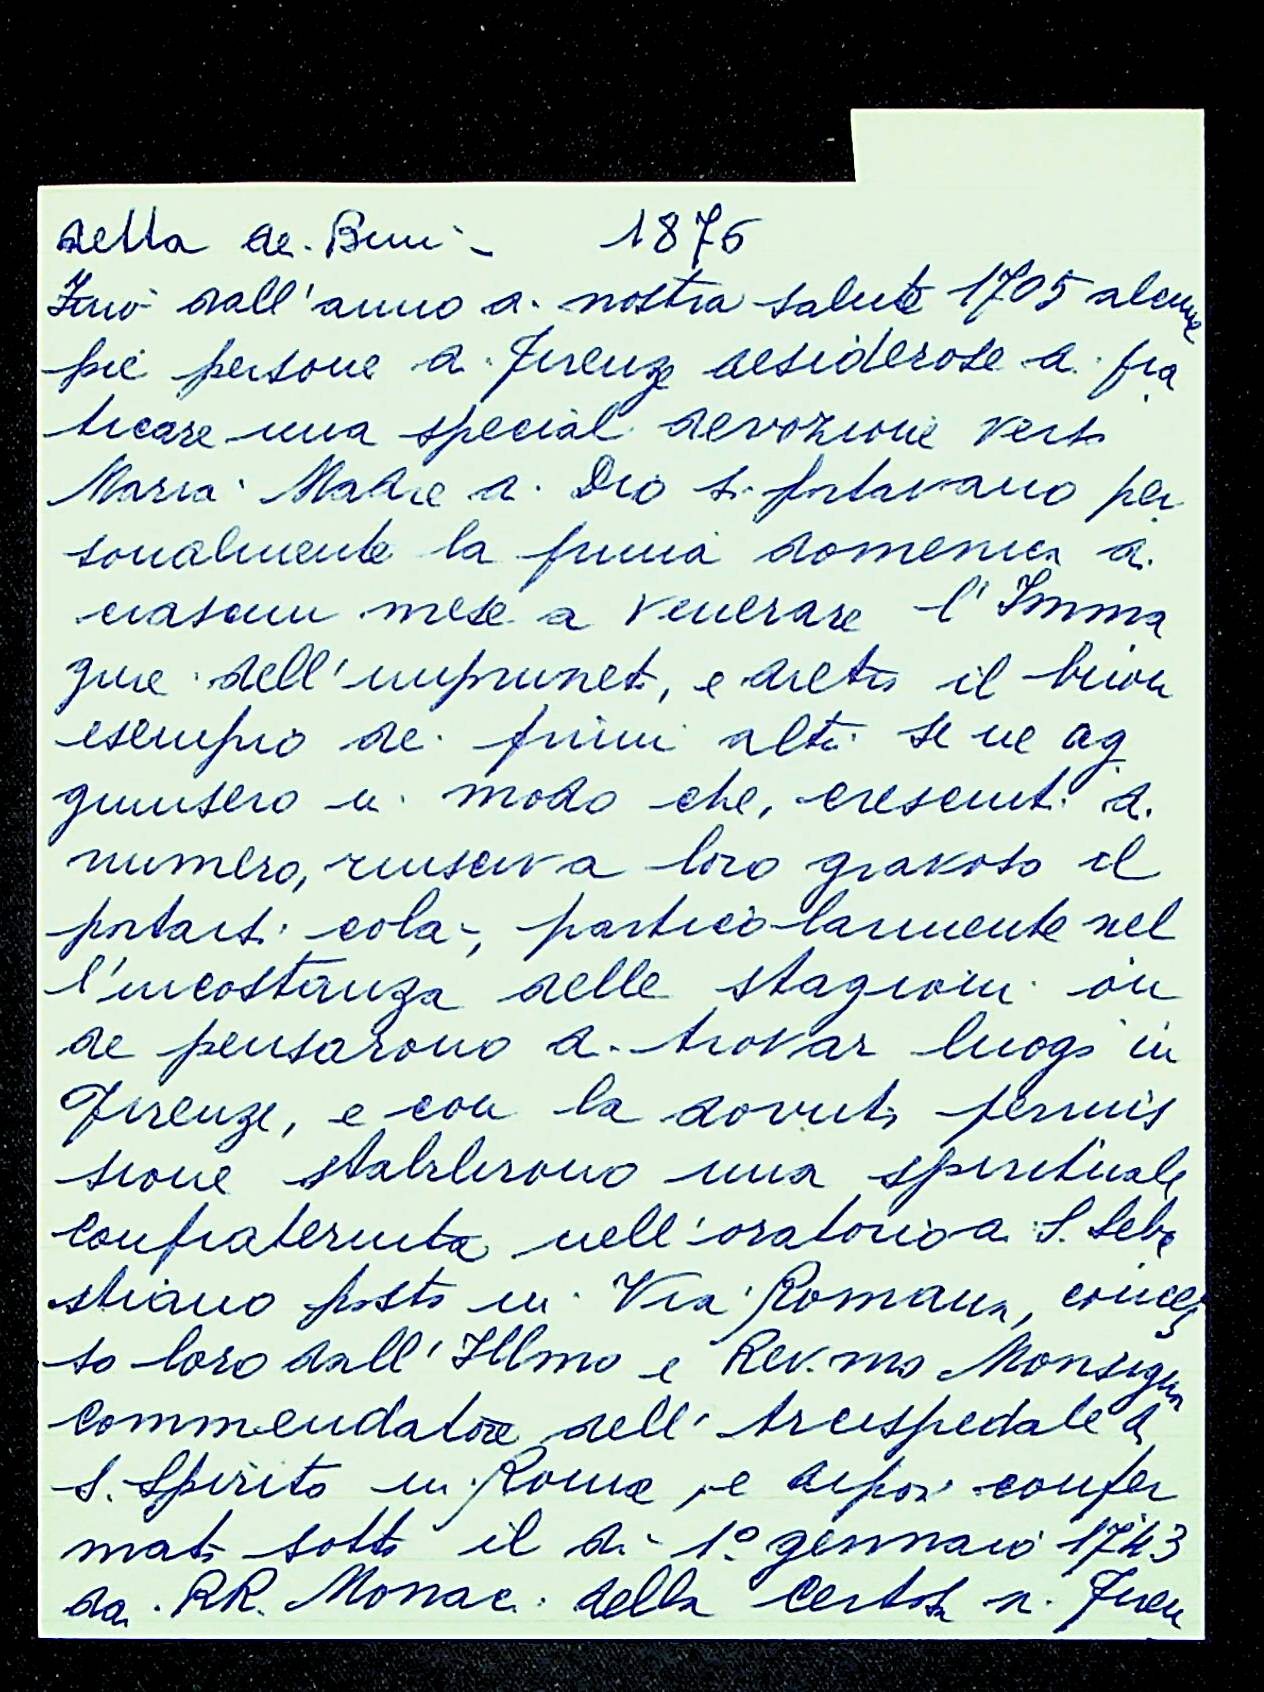 detta de' Bini - 1876
Fino dall'anno di nostra salute 1705 alcune
pie persone di Firenze desiderose di pra
ticare una special devozione verso
Maria Madre di Dio si portavano per
sonalmente la prima domenica di
ciascun mese a venerare l'Imma
gine dell'impruneta, e dietro il buon
esempio dei primi altri se ne ag
giunsero in modo che, cresciuti di
numero, riusciva loro gravoso il
portarsi colà, particolarmente nel
l'incostanza delle stagioni on
de pensarono di trovar luogo in
Firenze, e con la dovuta permis
sione stabilirono una spirituale
confraternita nell'oratorio di S. Seba
stiano posto in Via Romana, conces
so loro dall'Illmo e Rev.mo Monsignor
Commendatore dell'Arcispedale di
S. Spirito in Roma, e dipoi confer
mato sotto il dì 1° gennaio 1743
dai RR. Monaci della Certosa di Firen